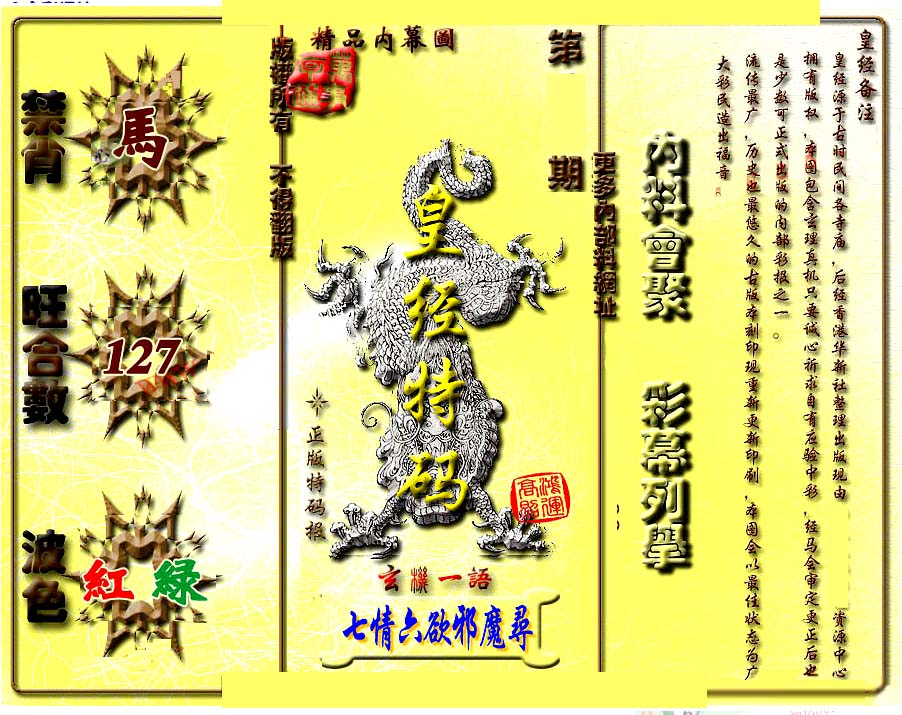 皇经备注
皇经源于古时民间各寺庙，后经香港华新社整理出版现由
资源中心
拥有版权，本图包含玄理真机只要诚心祈求自有应验中彩，经马会审定更正后也
是少数可正式出版的内部彩报之一。
流传最广，历史也最悠久的古版本刻印现重新更新印刷，本图会以最佳状态为广
大彩民造出福音
内料會聚
彩幕列舉
更多內部料網址
第
期
精品内幕圖
皇经特码
正版特码报
鴻運
高照
玄機一語
七情六欲邪魔尋
版權所有
不得翻版
禁肖
馬
旺合數
127
波色
紅 綠